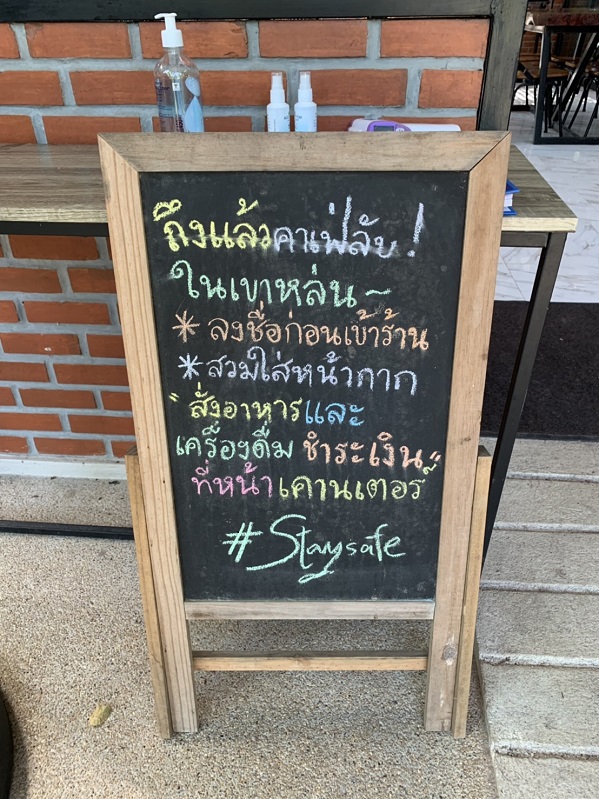 ถึงแล้วคาเฟ่ลับ!
ในเขาหล่น~
* ลงชื่อก่อนเข้าร้าน
* สวมใส่หน้ากาก
"สั่งอาหารและ
เครื่องดื่ม ชำระเงิน"
ที่หน้าเคานเตอร์
#Staysafe